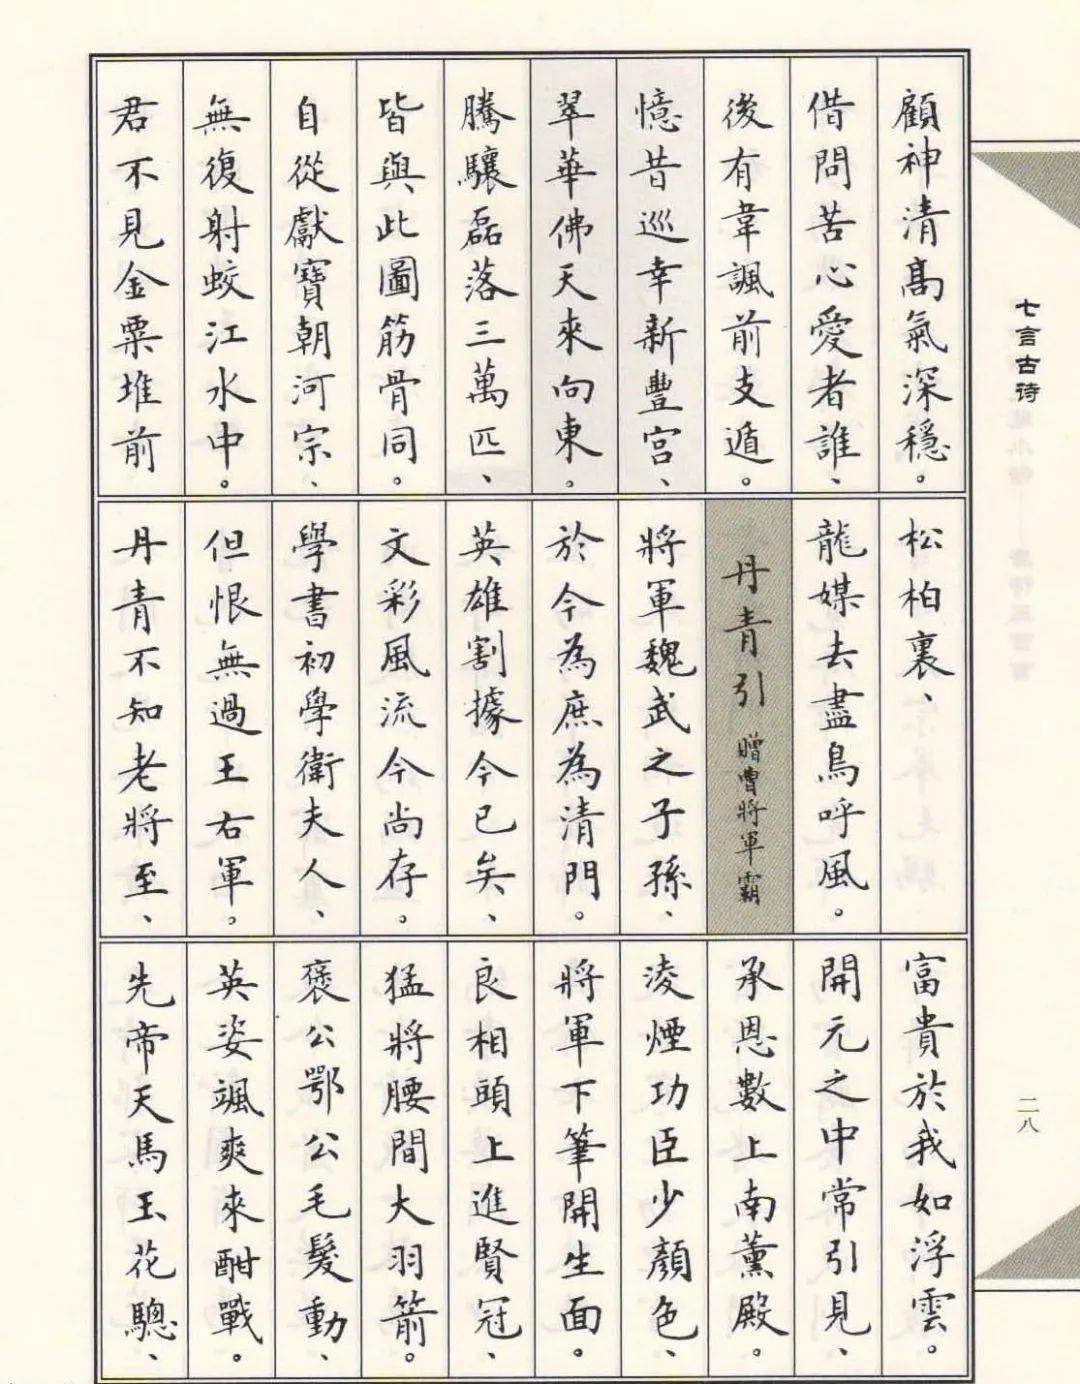 顧神清高氣深穩。
借問苦心愛者誰、
後有韋諷前支遁。
憶昔巡幸新豐宮、
翠華拂天來向東。
騰驤磊落三萬匹、
皆與此圖筋骨同。
自從獻寶朝河宗、
無復射蛟江水中。
君不見金粟堆前
松柏裏、
龍媒去盡鳥呼風。
丹青引 贈曹將軍霸
將軍魏武之子孫、
於今為庶為清門。
英雄割據今已矣、
文彩風流今尚存。
學書初學衛夫人、
但恨無過王右軍。
丹青不知老將至、
富貴於我如浮雲。
開元之中常引見、
承恩數上南薰殿。
淩煙功臣少顏色、
將軍下筆開生面。
良相頭上進賢冠、
猛將腰間大羽箭。
褒公鄂公毛髮動、
英姿颯爽來酣戰。
先帝天馬玉花驄、
七言古诗
二八